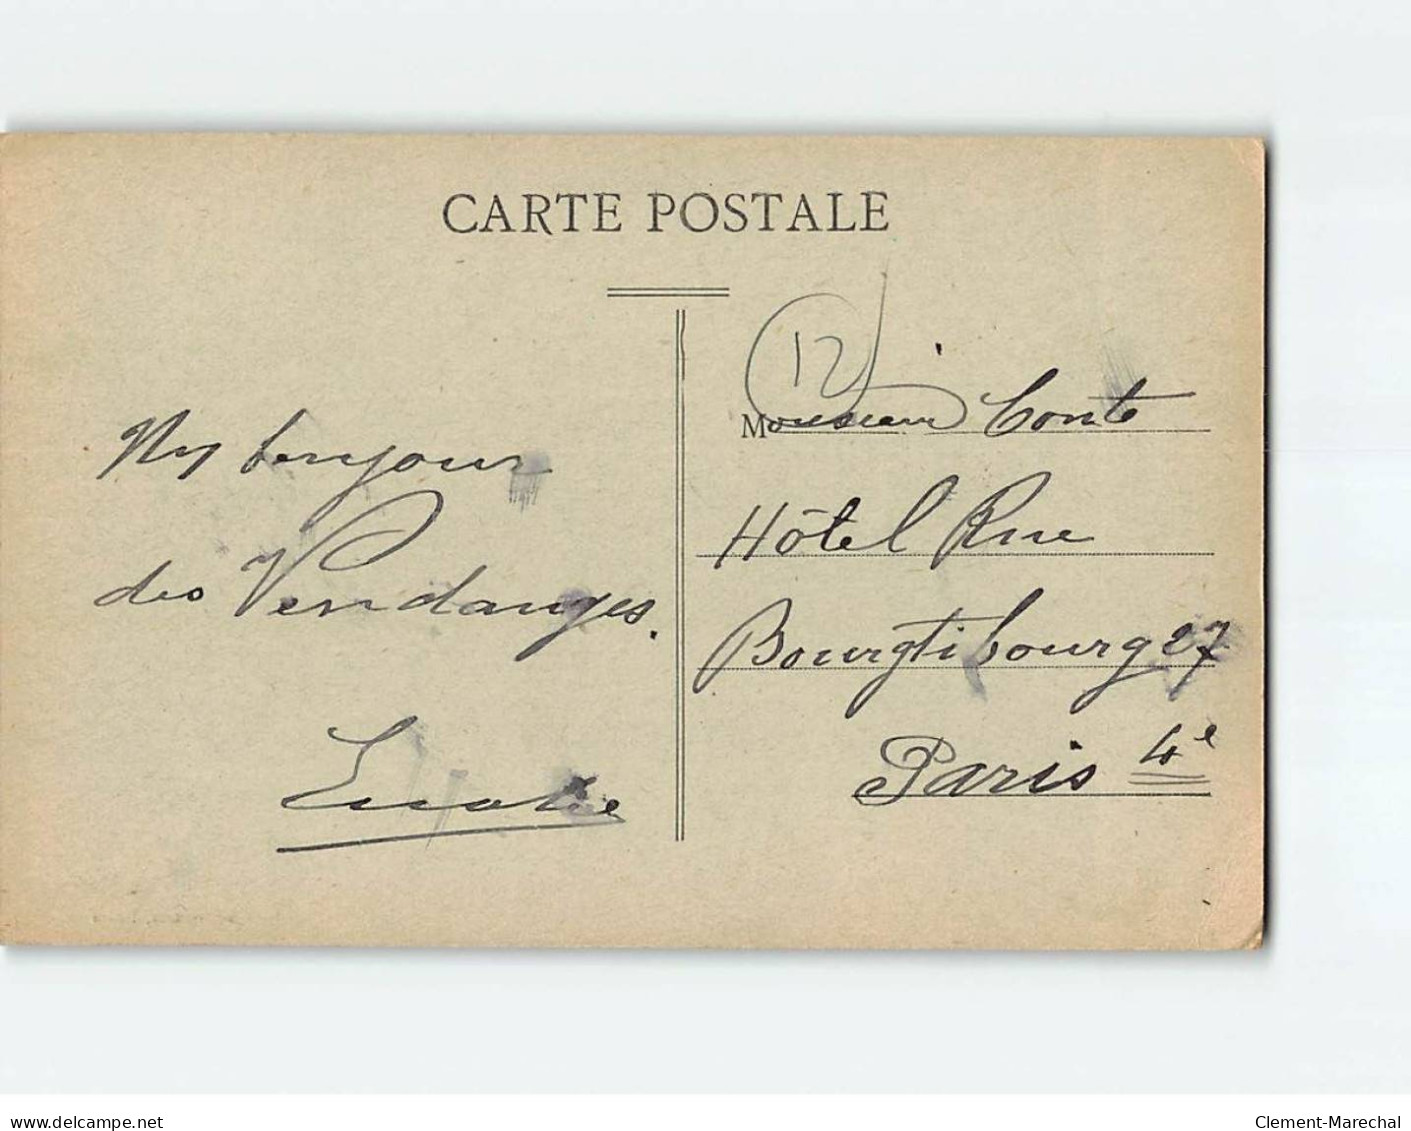 CARTE POSTALE
12
bonjour
des Vendanges.
Monsieur Conte
Hôtel Rue
Bourgtibourg 27
Paris 4e
www.delcampe.net
Clement-Marechal